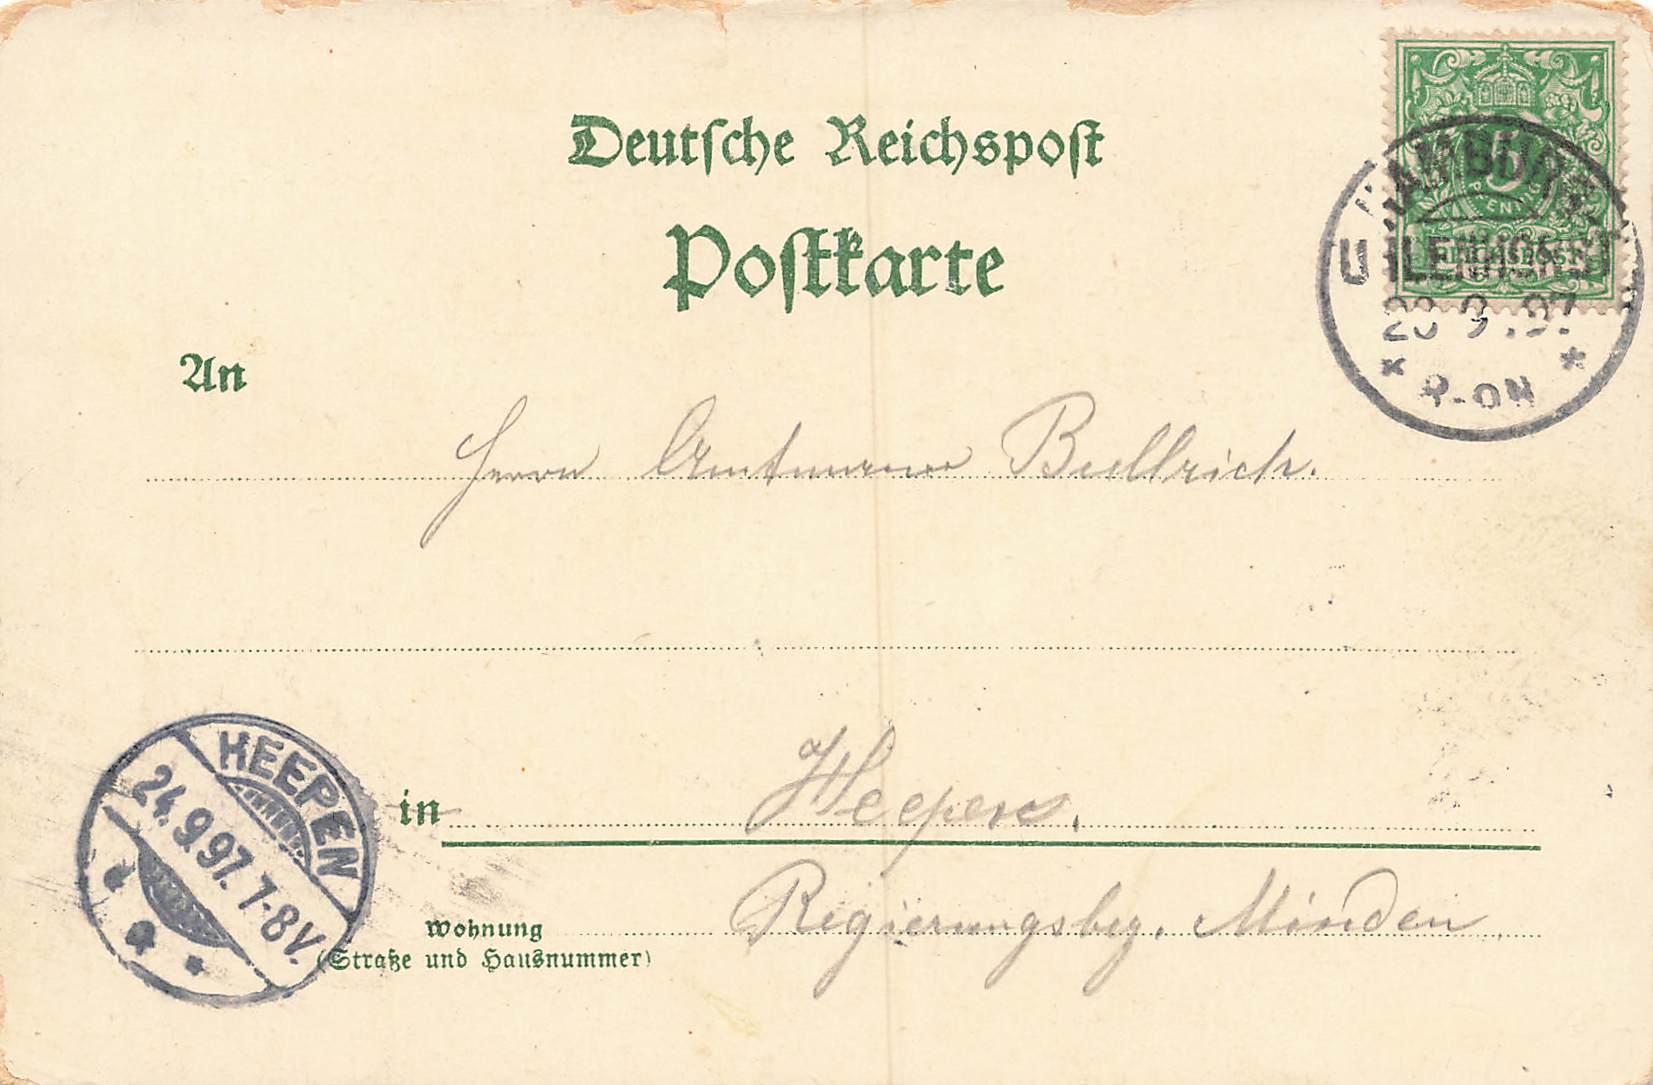 Deutsche Reichspost
Postkarte
HAMBURG
UHLENHORST
23.9.97
8-9N
5
PFENNIG
REICHSPOST
An
Herrn Amtmann Bullrich.
in Heepen.
Regierungsbez. Minden.
Wohnung
(Straße und Hausnummer)
HEEPEN
24.9.97. 7-8V.
a